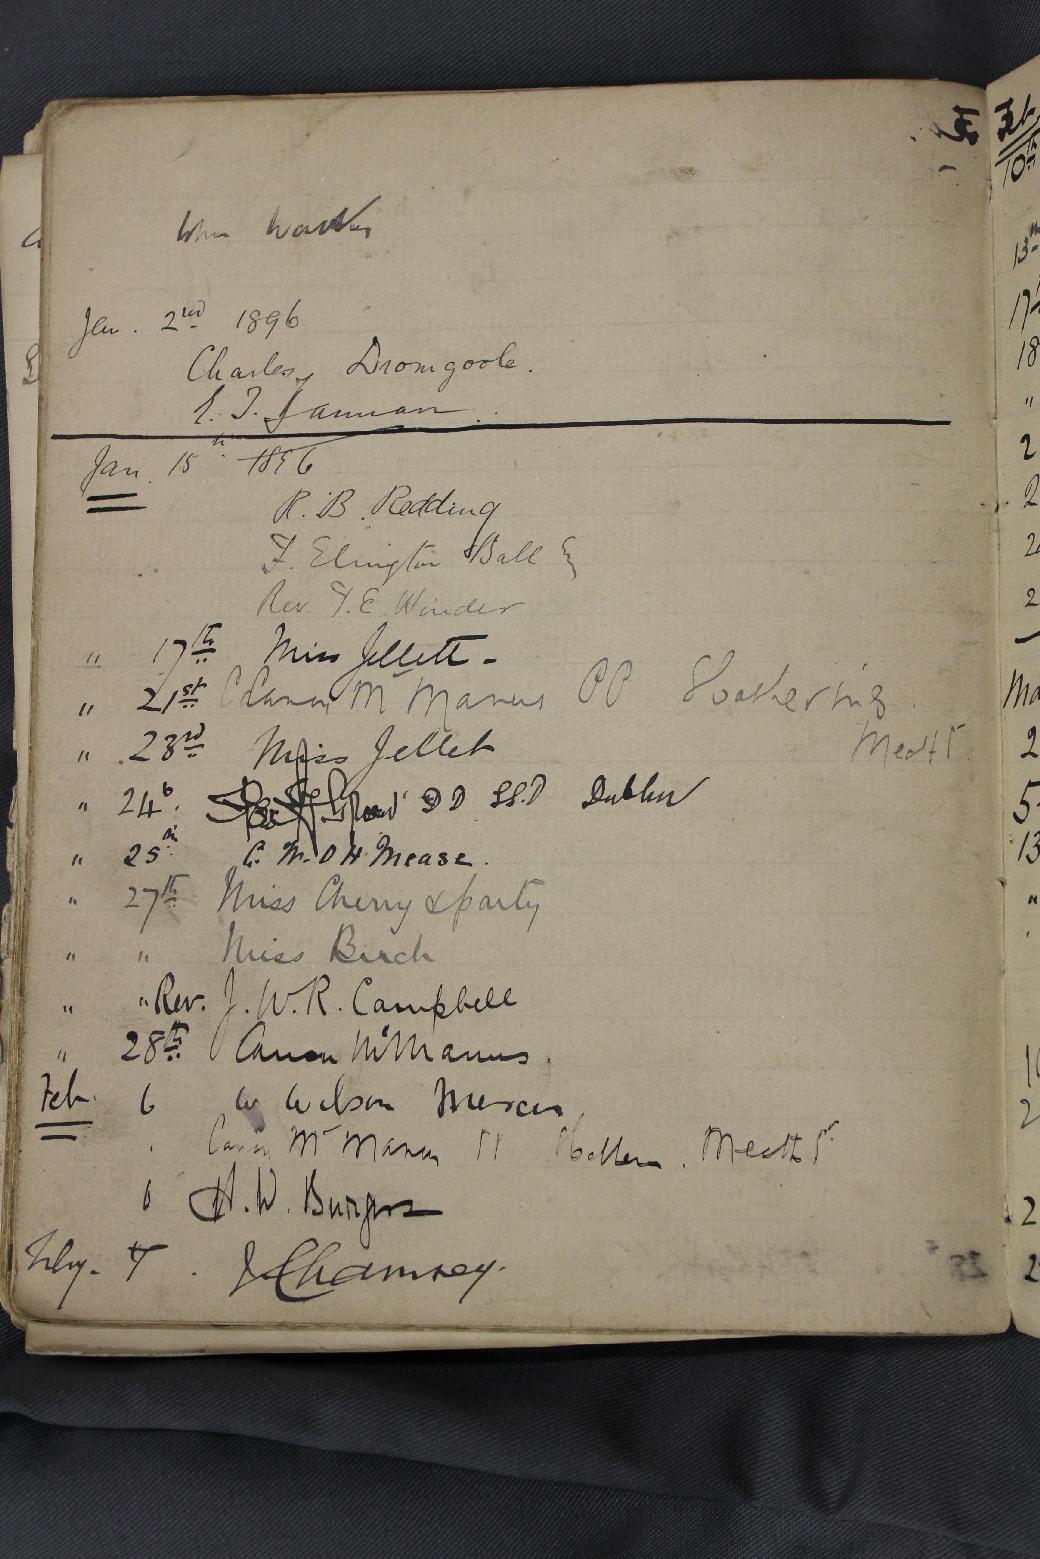 John
Jan. 2nd 1896
Charles Dromgoole.
Jan. 15th 1896
R. B. Redding
F. Elrington Ball Esq
Rev. T. E. Winder
" 17th Miss Jellett -
" 21st Canon McManus PP
" 23rd Miss Jellet
" 24th. DD LL.D Dublin
" 25th C. M. O H Mease.
" 27th Miss Cherry & party
" " Miss Birch
" " Rev. J. W. R. Campbell
" 28th Canon McManus.
Feb. 6 W Wilson Mercer
Canon McManus Meath St
6 H. W. Burgess
Feby. 7. J Ghamsey.
Feb.
10th
13th
17th
18
"
2
2
2
2
Ma
2
5
13
"
2
2
2